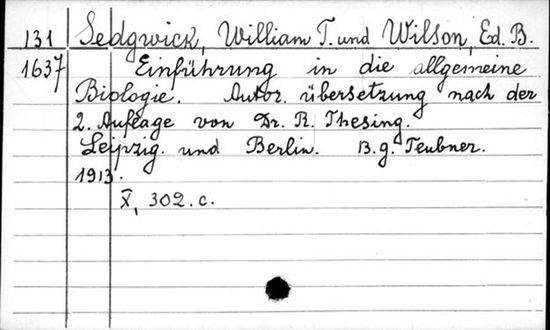 131 Sedgwick, William T. und Wilson, Ed. B.
1637 Einführung in die allgemeine
Biologie. Autor. übersetzung nach der
2. Auflage von Dr. R. Thesing.
Leipzig und Berlin. B. G. Teubner.
1913.
X, 302. c.